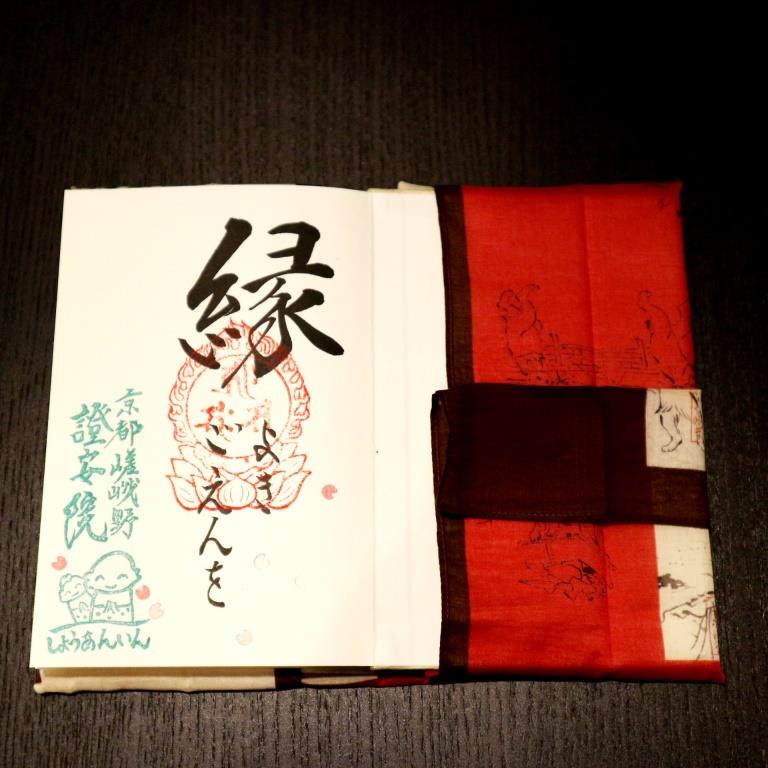 縁
よき
ごえんを
京都嵯峨野
證安院
しょうあんいん